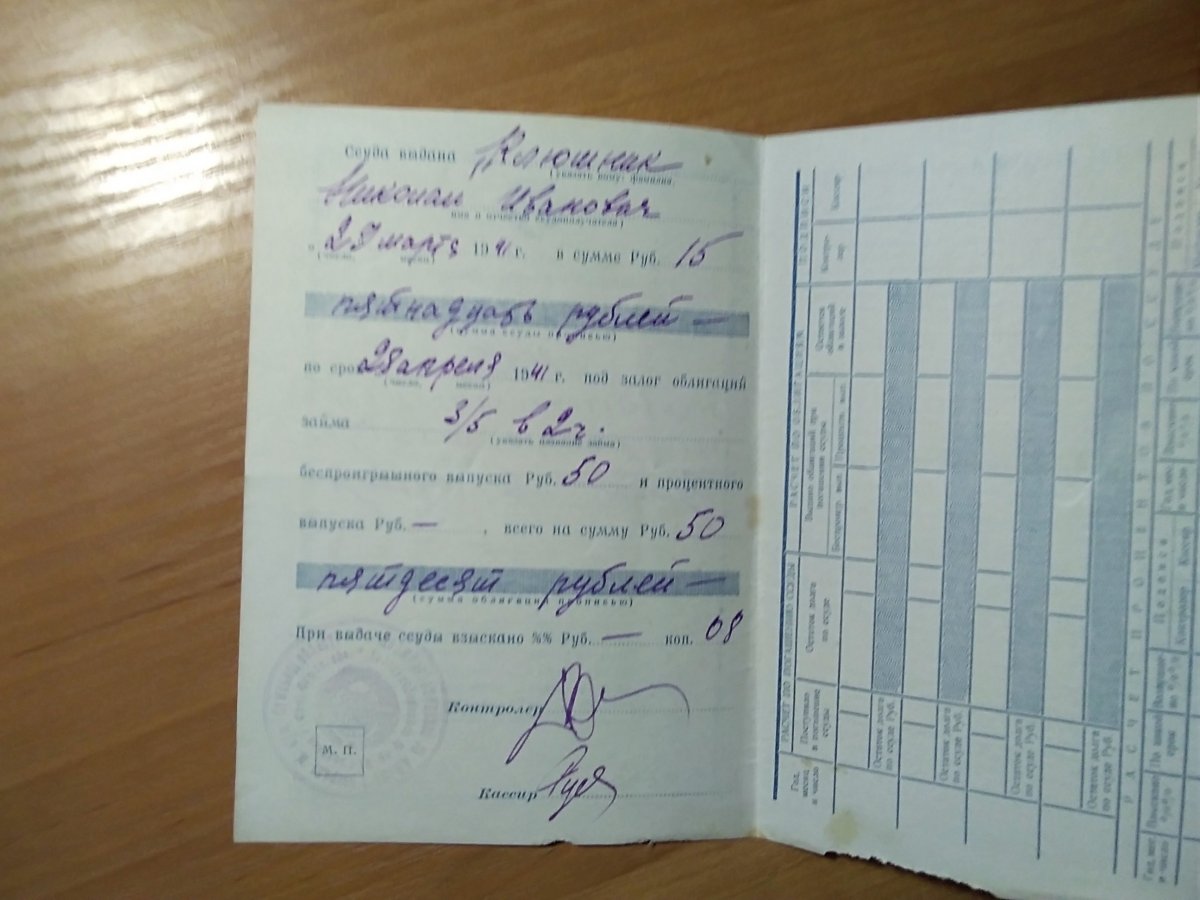 Ссуда выдана Клюшник
(указать кому: фамилия,
Николай Иванович
имя и отчество ссудополучателя)
" 29 марта 1941 г. в сумме Руб. 15
(число, месяц)
пятнадцать рублей —
(сумма ссуды прописью)
по срок 28 апреля 1941 г. под залог облигаций
(число, месяц)
займа 3/5 в 2 г.
(указать название займа)
беспроигрышного выпуска Руб. 50 и процентного
выпуска Руб. — , всего на сумму Руб. 50
пятдесят рублей —
(сумма облигаций прописью)
При выдаче ссуды взыскано %% Руб. — коп. 08
Контролер
М. П.
Кассир
РАСЧЕТ ПО ПОГАШЕНИЮ ССУДЫ
РАСЧЕТ ПО ОБЛИГАЦИЯМ
ПОДПИСИ
Год, месяц и число
Поступило в погашение ссуды
Остаток долга по ссуде
Выдано облигаций при погашении ссуды
Беспроигр. вып.
Процентн. вып.
Остается облигаций в залоге
Контролер
Кассир
Остаток долга по ссуде Руб.
Остаток долга по ссуде Руб.
Остаток долга по ссуде Руб.
Остаток долга по ссуде Руб.
РАСЧЕТ ПРОЦЕНТОВ ПО ССУДЕ
Год, мес. и число
Взыскано %%
По какой срок
Подписи
Контролер
Кассир